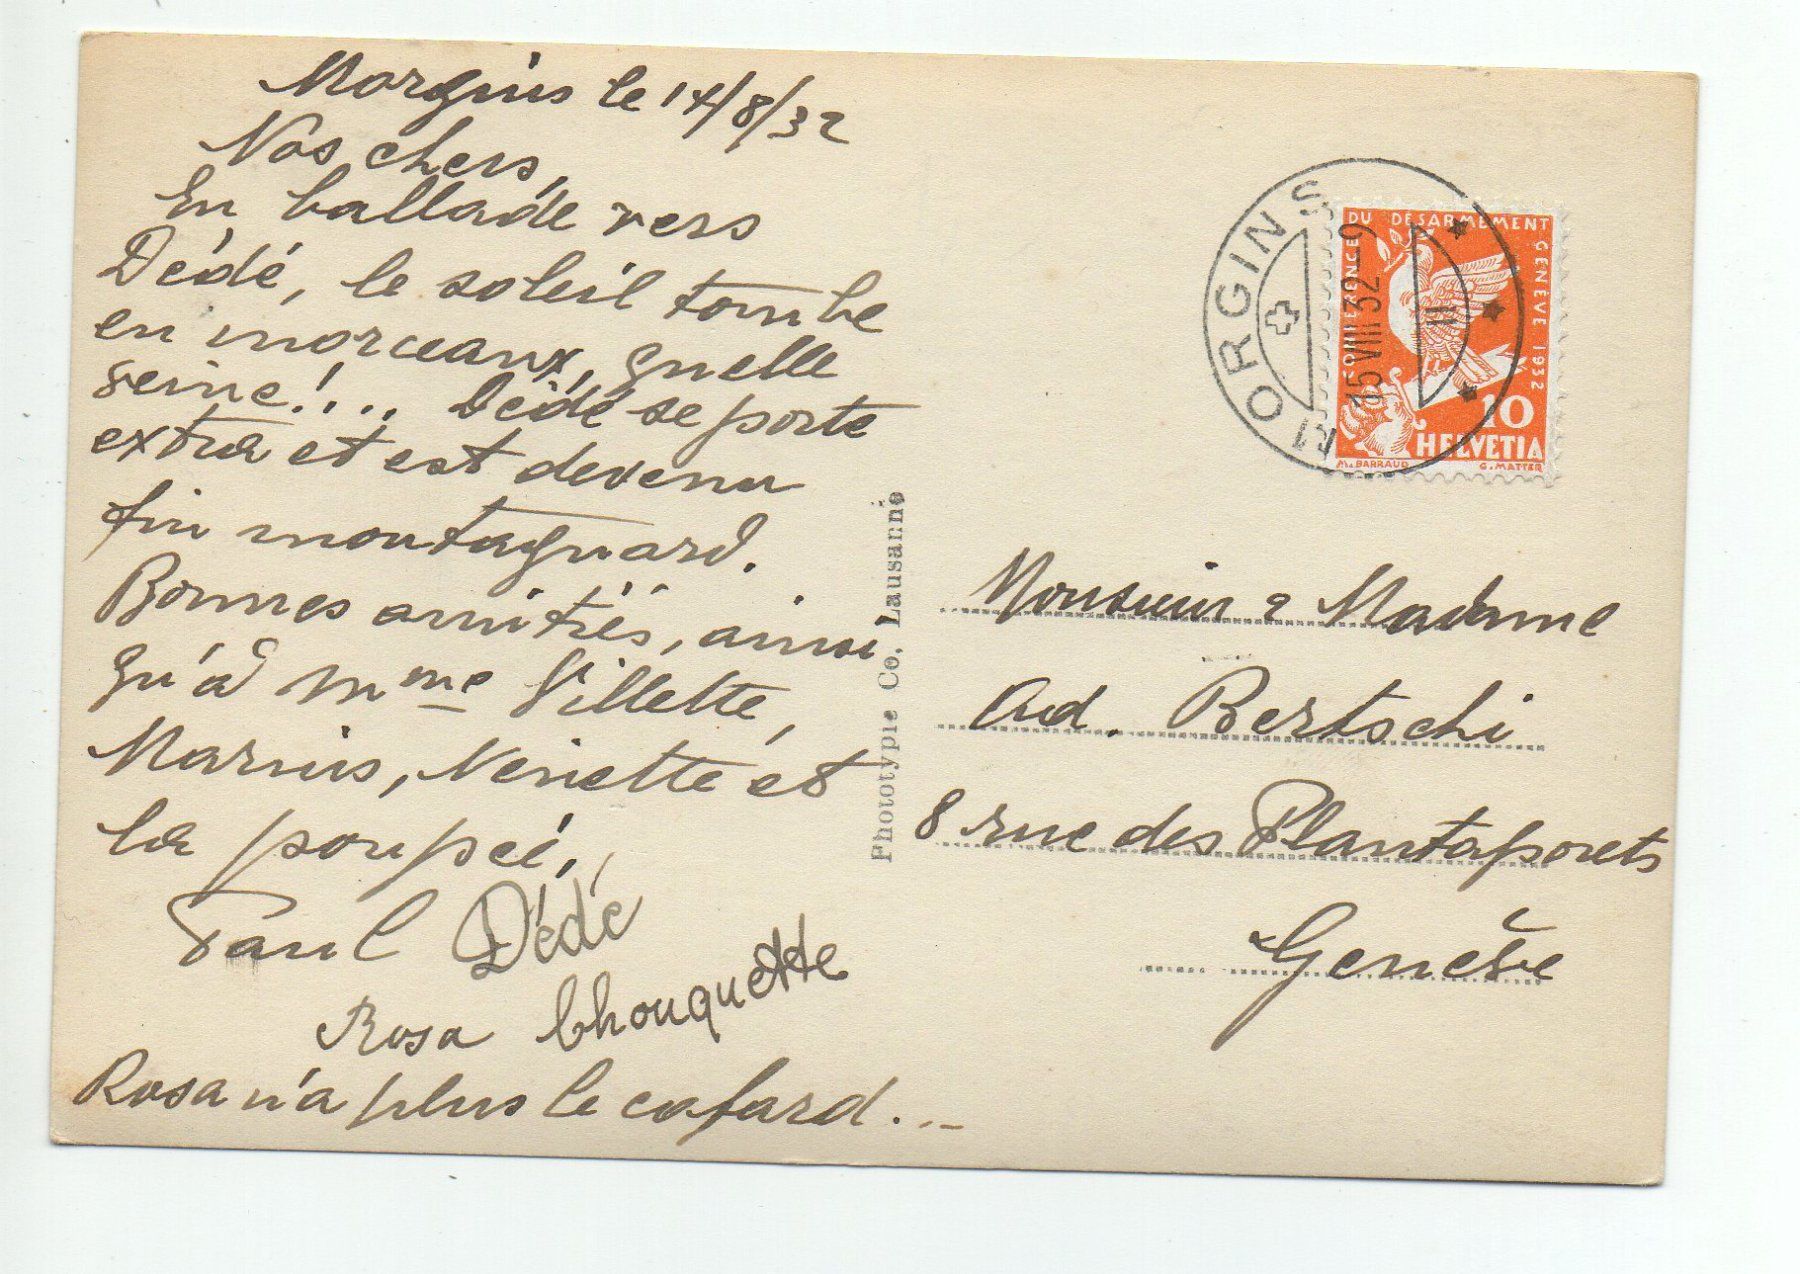 Morgins le 14/8/32
Nos chers,
En ballade vers
Dédé, le soleil tombe
en morceaux, quelle
veine!... Dédé se porte
extra et est devenu
fin montagnard.
Bonnes amitiés, ainsi
qu'à Mme Villette,
Marius, Nénette et
la poupée,
Paul Dédé
Rosa Chouquette
Rosa n'a plus le cafard...
Phototypie Co. Lausanne
MORGINS
15 VIII 32 - 9
CONFERENCE DU DESARMEMENT GENEVE 1932
10
HELVETIA
M. BARRAUD G. MATTER
Monsieur & Madame
Ad. Bertschi
8 rue des Plantaporets
Genève